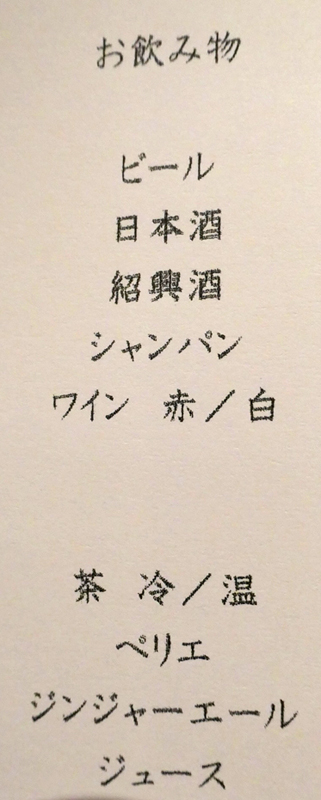 お飲み物
ビール
日本酒
紹興酒
シャンパン
ワイン 赤／白
茶 冷／温
ペリエ
ジンジャーエール
ジュース